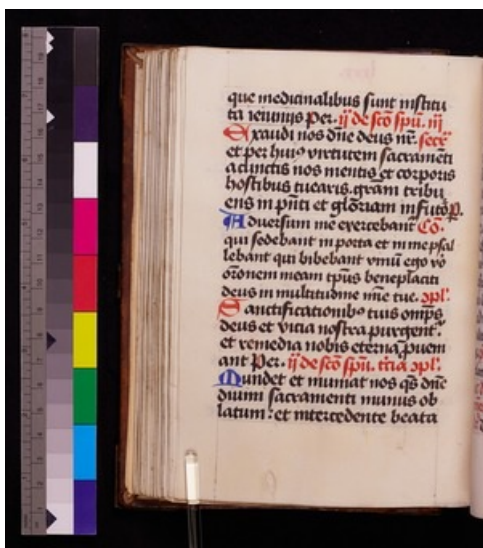 que medicinalibus sunt institu
ta ieiunijs Per. ij de sco spu. iij
Exaudi nos dne deus nr. secr
et per hui9 virtutem sacramenti
a cunctis nos mentis et corporis
hostibus tuearis. gram tribu
ens in pnti et gloriam in futo p.
Aduersum me exercebant Co.
qui sedebant in porta et in me psal
lebant qui bibebant vinu ego vo
oronem meam tpus beneplaciti
deus in multitudine mie tue. opl.
Sanctificationib9 tuis omps
deus et vicia nostra purgent.
et remedia nobis eterna puem
ant Per. ij de sco spu. tcia opl.
Mundet et muniat nos qs dne
diuini sacramenti munus ob
latum. et intercedente beata